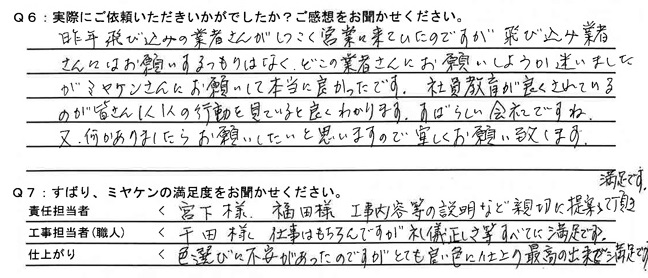 Q6：実際にご依頼いただきいかがでしたか？ご感想をお聞かせください。
昨年飛び込みの業者さんがしつこく営業に来ていたのですが飛び込み業者
さんにはお願いするつもりはなく、どこの業者さんにお願いしようか迷いました
がミヤケンさんにお願いして本当に良かったです。社員教育が良くされている
のが皆さん1人1人の行動を見ていると良くわかります。すばらしい会社ですね。
又、何かありましたらお願いしたいと思いますので宜しくお願い致します。
Q7：ずばり、ミヤケンの満足度をお聞かせください。
満足です。
責任担当者 < 宮下様、福田様 工事内容等の説明など親切に提案して頂き
工事担当者(職人) < 千田様 仕事はもちろんですが礼儀正しさ等すべてに満足です。
仕上がり < 色選びに不安があったのですがとても良い色に仕上り最高の出来で満足です。